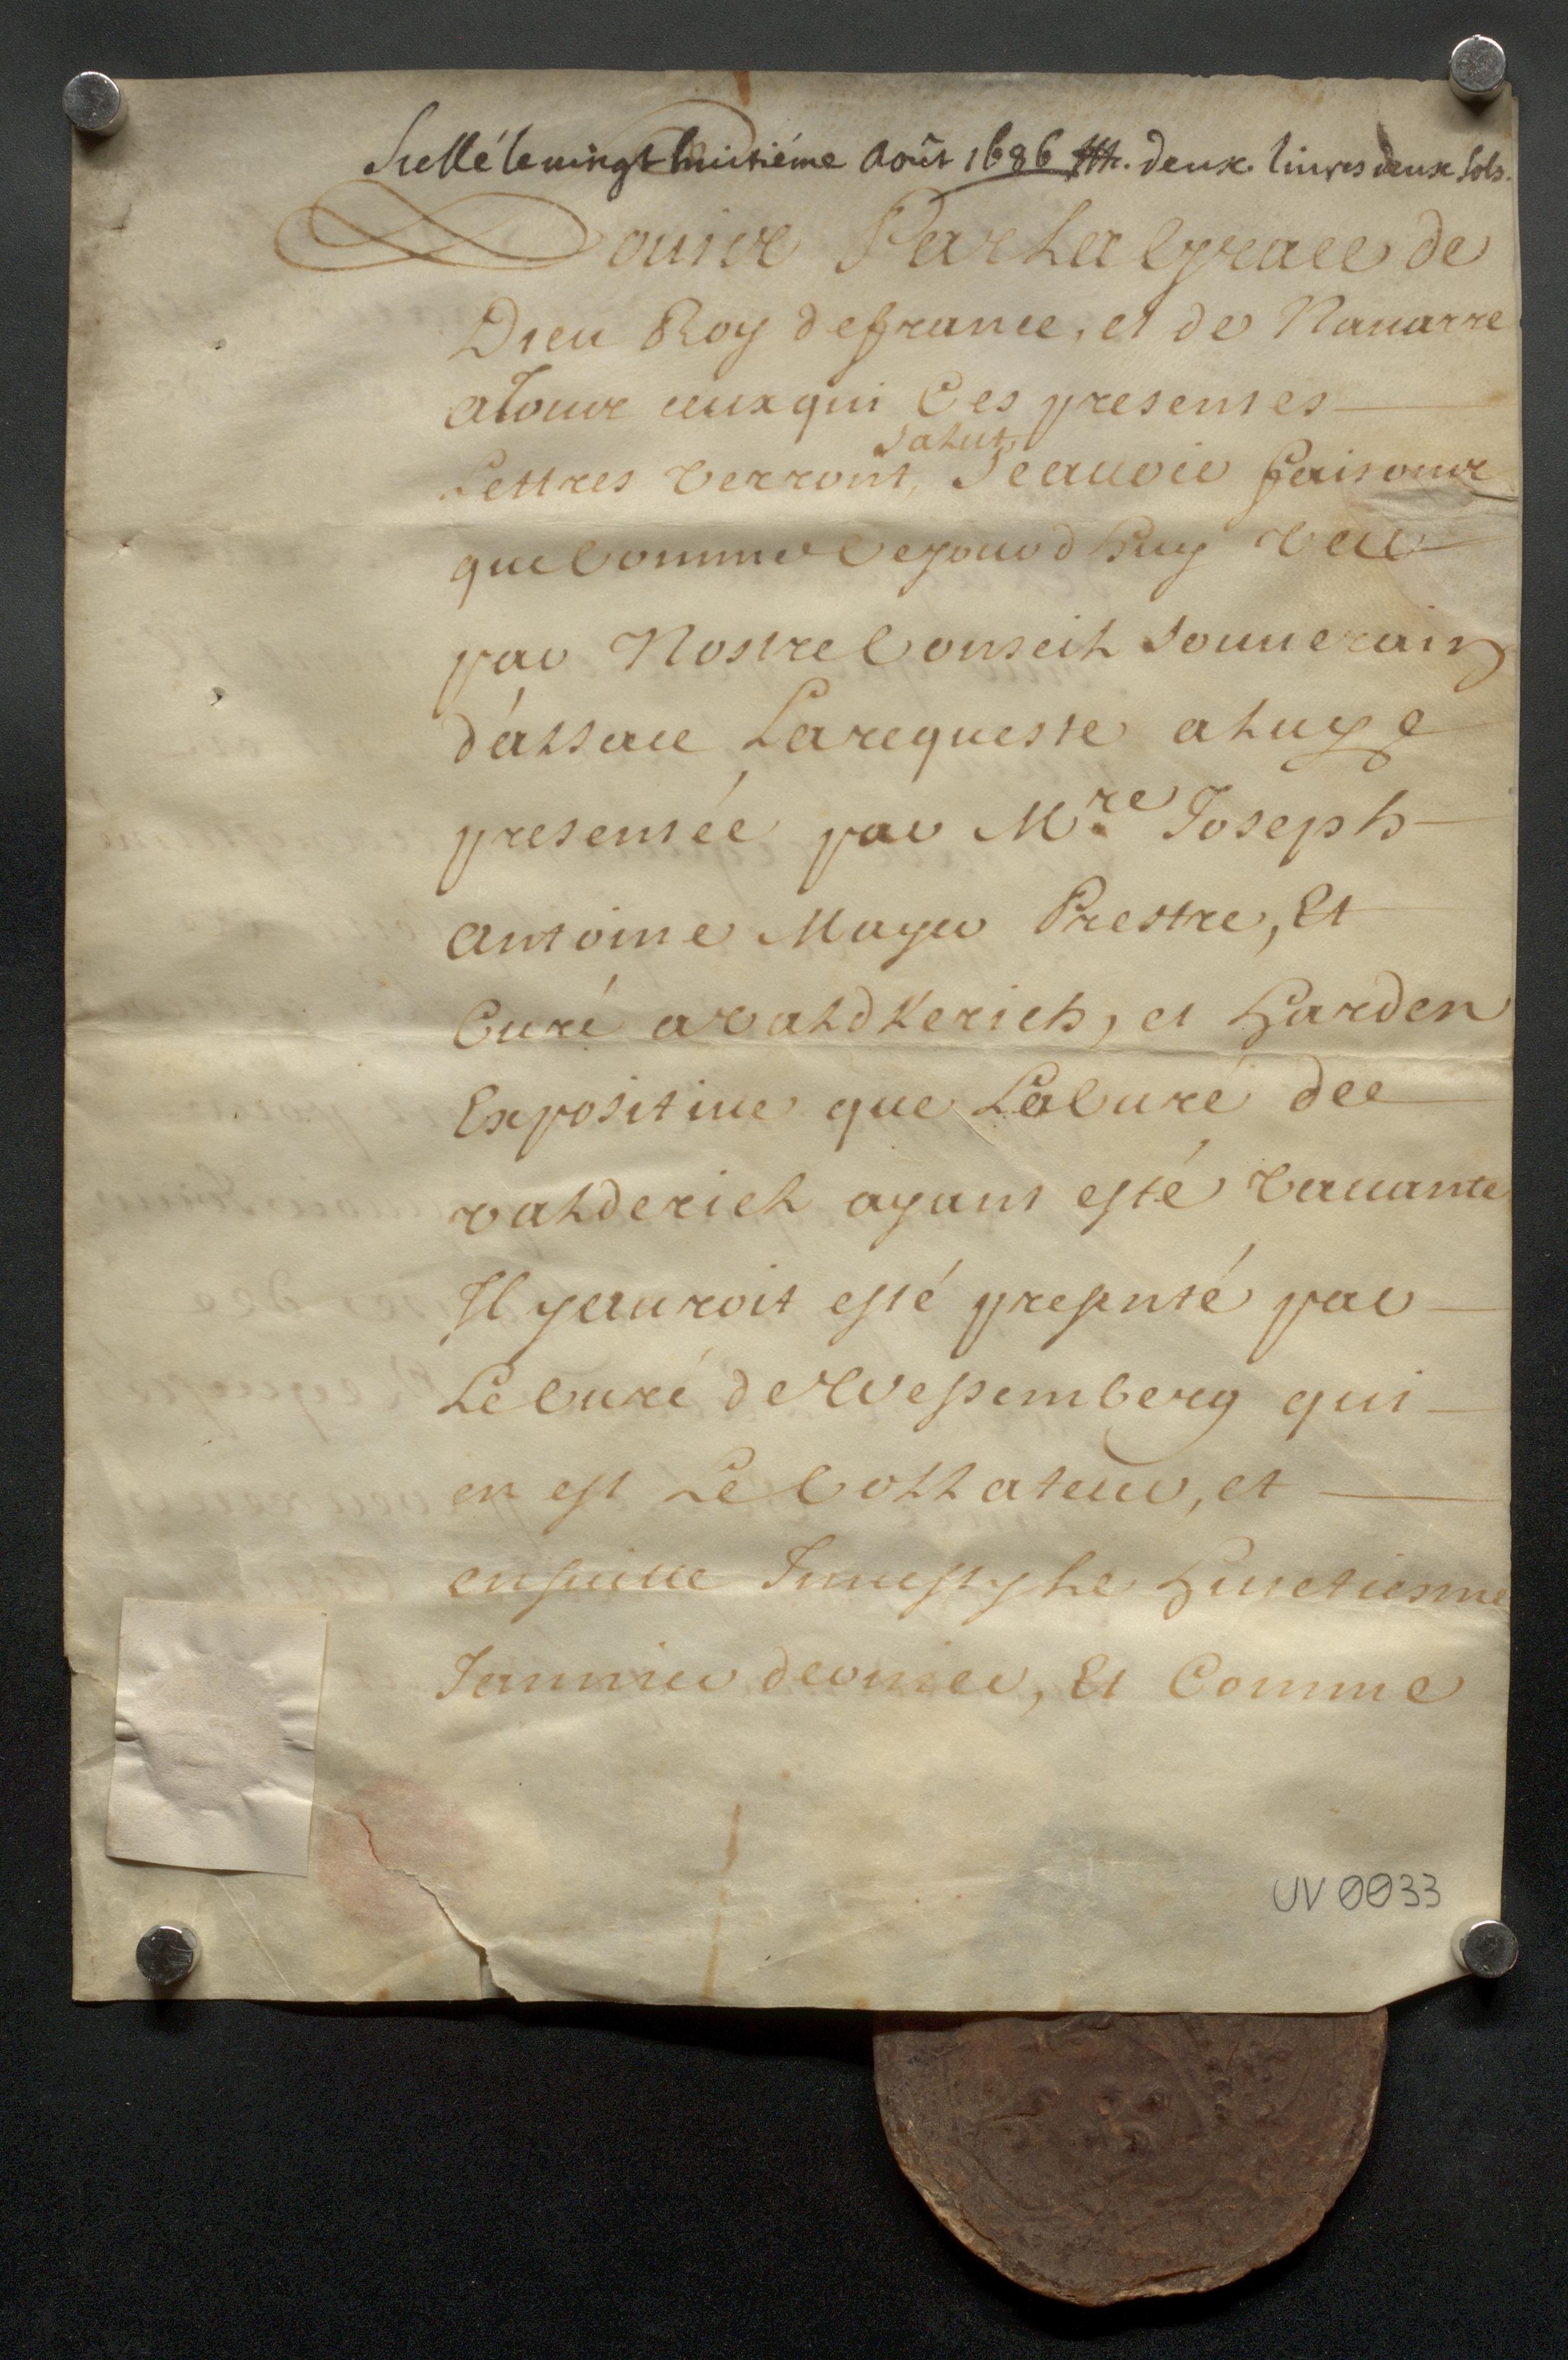 Scellé le vingt huitiéme Août 1686 deux livres deux sols.
Louis Par La Grace de
Dieu Roy de france, et de Nauarre
a Tous ceux qui Ces presentes
Salut
Lettres Verront, Scauoir faisons
que Comme Cejourd'huy Veu
par Nostre Conseil Souuerain
d'alsace La requeste a luy
presentée par Mre Joseph
Antoine Mayer Prestre, Et
Curé a valdKerich, et Harden
Expositiue que La Curé de
valderich ayant esté Vacante
Il y auroit esté presenté par
Le Curé de Wessemberg qui
en est Le Collateur, et
ensuitte Inuesty le huictiesme
Januier dernier, Et Comme
UV 0033